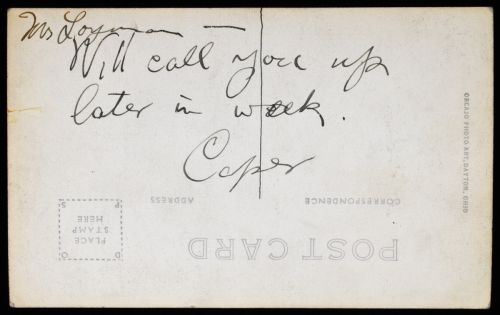 Mrs Loyman —
Will call you up
later in week.
Caper
CORRESPONDENCE
ADDRESS
POST CARD
PLACE
STAMP
HERE
CREAJO PHOTO ART, DAYTON, OHIO